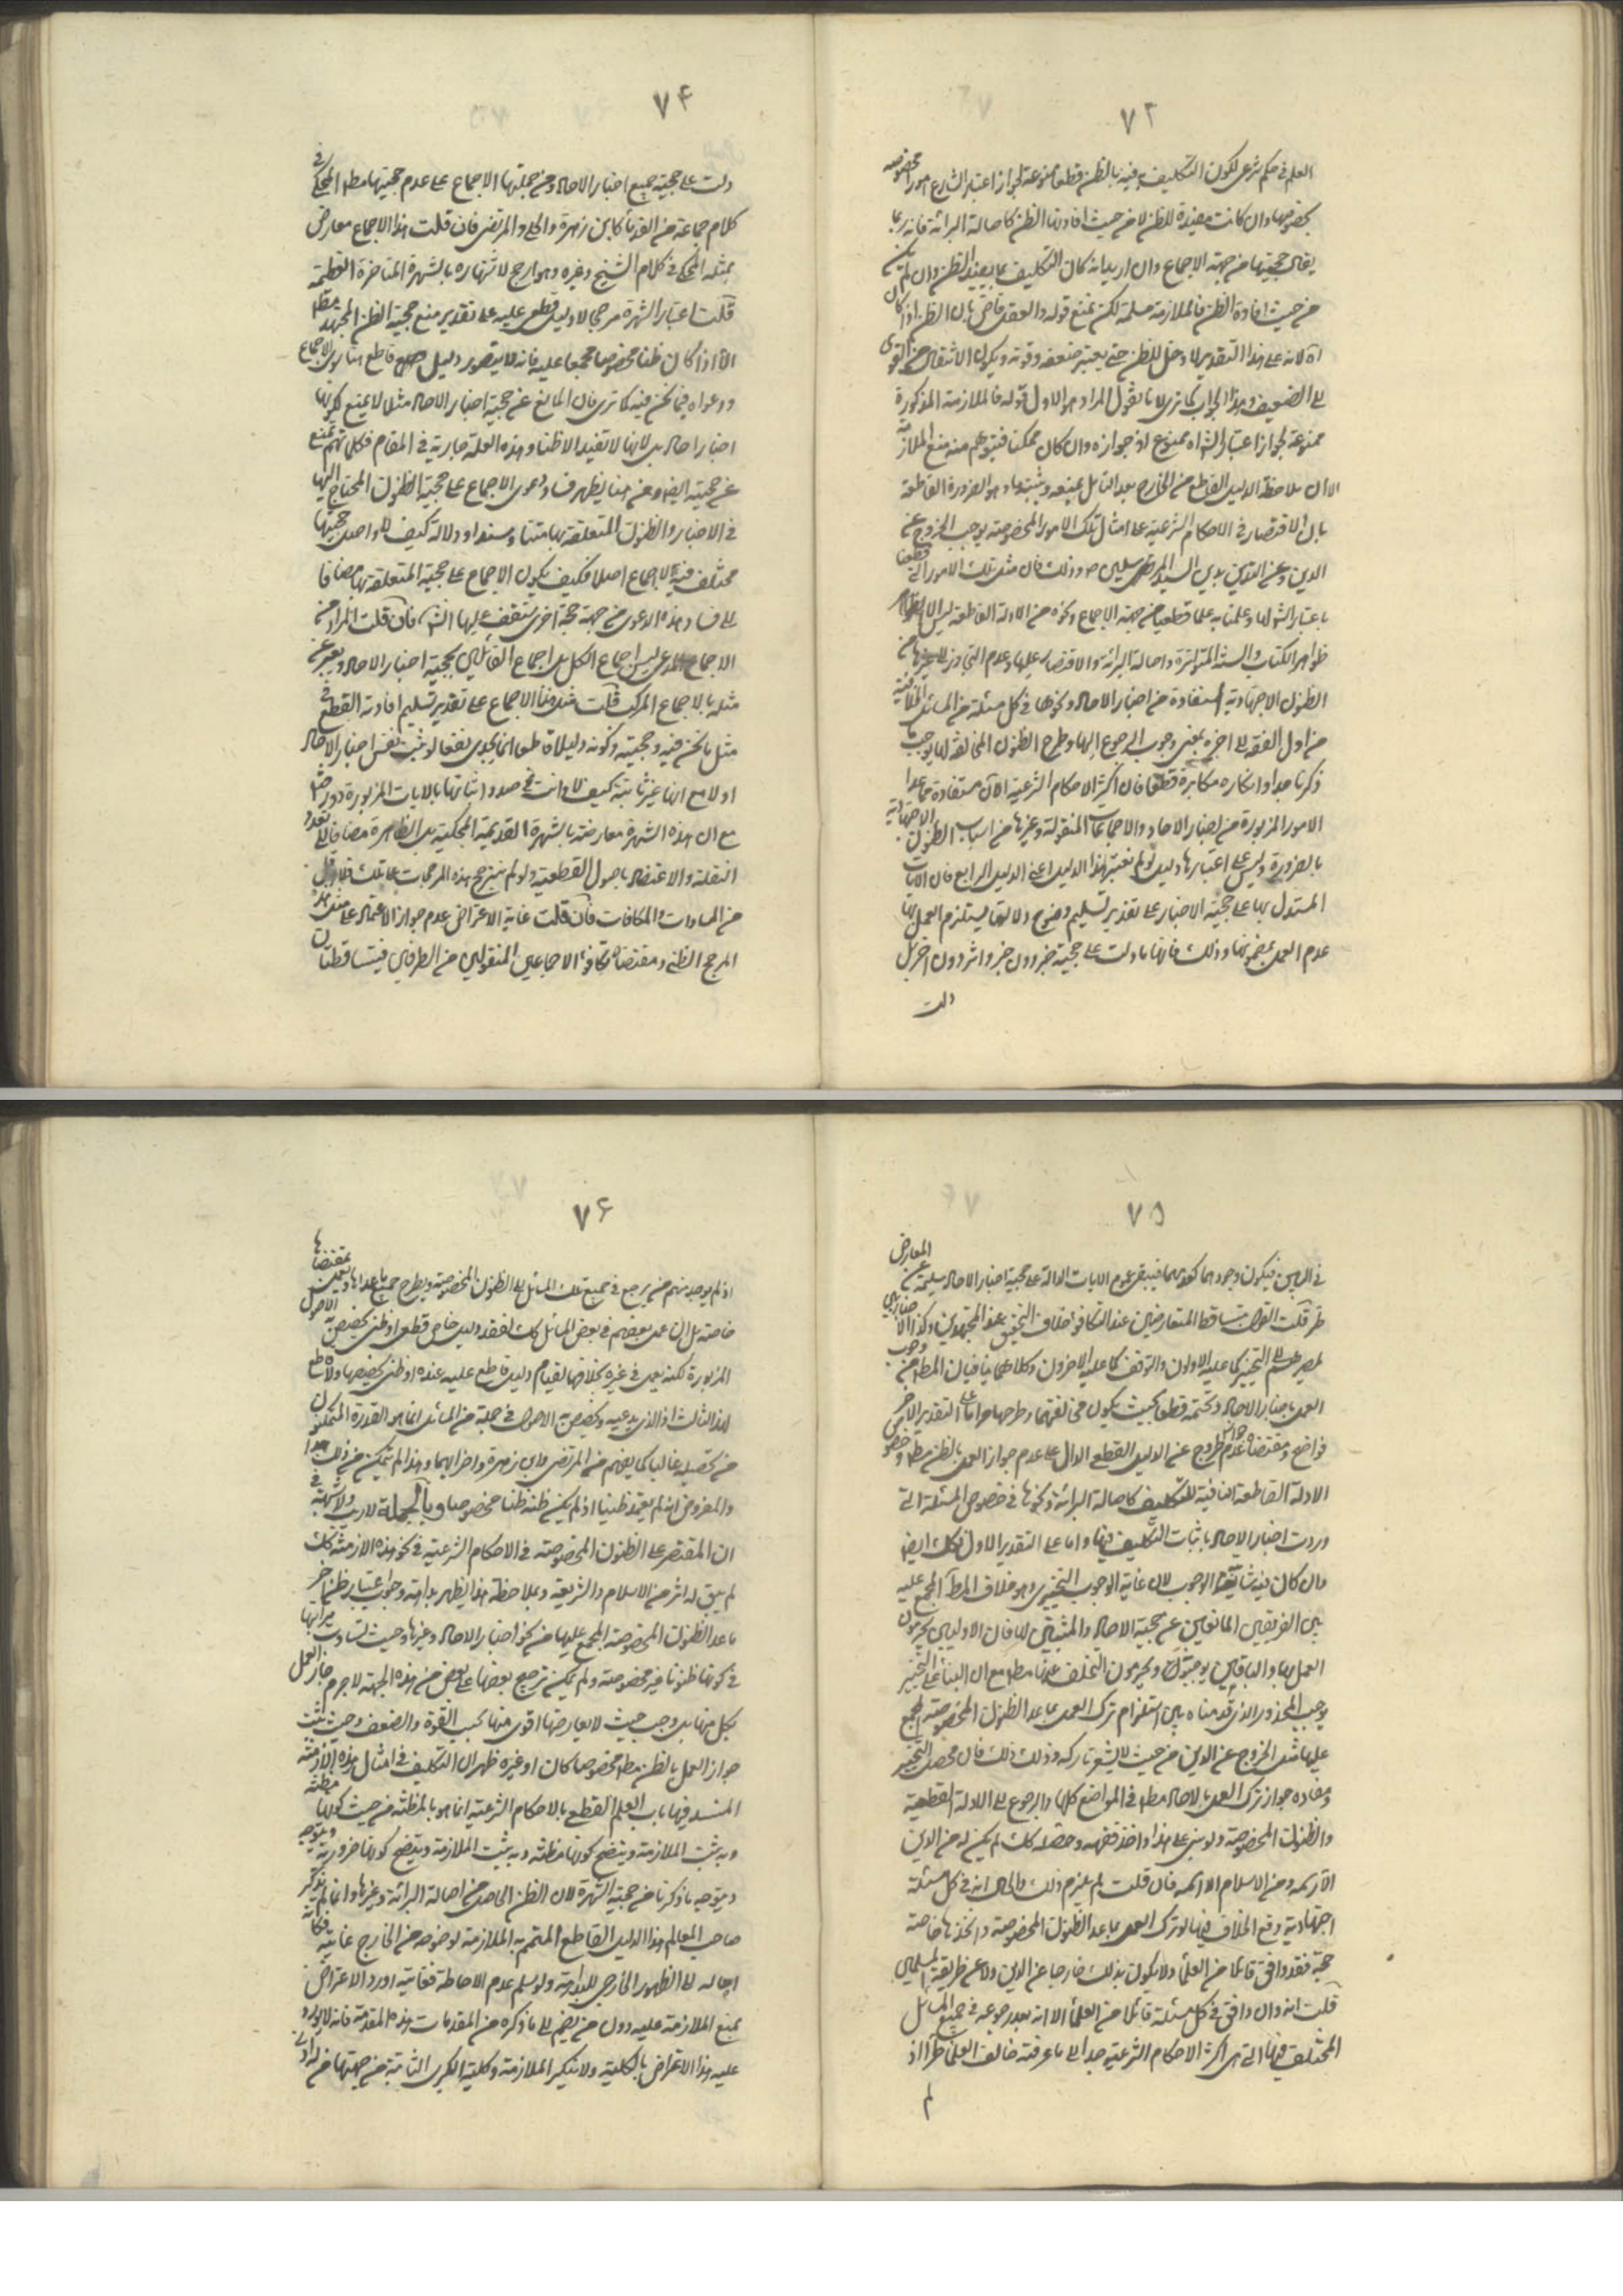 ٧٢
العلم فى حكم شرعى لكون التكليف فيه بالظن قطعا ممنوعة لجواز اعتبار الشارع امورا مخصوصة
بخصوصها وان كانت مفيدة للظن لا من حيث افادتها الظن كاصالة البرائة فانه ربما
يقال حجيتها من جهة الاجماع وان اريد انه كان التكليف بما يفيد الظن وان لم يكن
من حيث افادة الظن فالملازمة مسلمة لكن نمنع قوله والعقل قاض بان الظن اذا كان
آه لانه على هذا التقدير لا دخل للظن حتى يعتبر ضعفه وقوته ويكون الانتقال من القوى
الى الضعيف وهذا الجواب كما ترى لانا نقول المراد هو الاول قوله فالملازمة المذكورة
ممنوعة لجواز اعتبار الش اه ممنوع اذ جوازه وان كان ممكنا فيتوهم منه منع الملازمة
الا ان ملاحظة الدليل القاطع من الخارج بعد التامل يمنعه ويثبتها وهو الضرورة القاطعة
بان الاقتصار فى الاحكام الشرعية على امثال تلك الامور المخصوصة يوجب الخروج عن
الدين وعن التدين بدين السيد المرسلين ص وذلك فان مثل تلك الامور التى قطعنا
باعتبار الش لها وعلمنا به علما قطعيا من جهة الاجماع ونحوه من الادلة القاطعة ليس الا
ظواهر الكتاب والسنة المتواترة واصالة البرائة والاقتصار عليها وعدم التجاوز الى غيرها من
الظنون الاجتهادية المستفادة من اخبار الاحاد ونحوها فى كل مسئلة من المسائل الخلافية
من اول الفقه الى اخره بمعنى وجوب الرجوع اليها وطرح الظنون المخالفة لها يوجب ما
ذكرنا جدا وانكاره مكابرة قطعا فان اكثر الاحكام الشرعية الان مستفادة مما عدا
الامور المزبورة من اخبار الاحاد والاجماعات المنقولة وغيرها من اسباب الظنون الاجتهادية
بالضرورة وليس على اعتبارها دليل لو لم نعتبر هذا الدليل اعنى الدليل الرابع فان الايات
المستدل بها على حجية الاخبار على تقدير تسليم وضوح دلالتها يستلزم العمل بها
عدم العمل بمضمونها وذلك فانها ما دلت على حجية خبر دون خبر واثر دون اخر بل
دلت
٧٤
دلت على حجية جميع اخبار الاحاد ومن جملتها الاجماع على عدم حجيتها مطم المحكى فى
كلام جماعة من القدماء كابن زهرة والحلى والمرتضى فان قلت هذا الاجماع معارض
بمثله المحكى فى كلام الشيخ وغيره وهو ارجح لاشتهاره بالشهرة المتاخرة العظيمة
قلت اعتبار الشهرة مرجحا لا دليل قطعى عليه على تقدير منع حجية الظن المجتهد مطم
الا اذا كان ظنا مخصوصا مجمعا عليه فانه لا يتصور دليل قاطع هنا سوى الاجماع
ودعواه فيما نحن فيه كما ترى فان المانع عن حجية اخبار الاحاد مثلا لا يمنع لكونها
اخبار احاد بل لانها لا تفيد الا ظنا وهذه العلة جارية فى المقام فكلما تهم تمنع
عن حجيته ايضا ومن هنا يظهر فساد دعوى الاجماع على حجية الظنون المحتاج اليها
فى الاخبار والظنون المتعلقة بها متنا وسندا ودلالة كيف لا واصل حجيتها
مختلف فيه لا اجماع اصلا فكيف يكون الاجماع على حجية المتعلقة بها مضافا
الى فساد هذه الدعوى من جهة حجة اخرى ستقف عليها انش فان قلت المراد من
الاجماع المدعى ليس اجماع الكل بل اجماع القائلين بحجية اخبار الاحاد ويعبر عن
مثله بالاجماع المركب قلت مثل هذا الاجماع على تقدير تسليم افادته القطع فى
مثل ما نحن فيه وحجيته وكونه دليلا قاطعا انما يجدى نفعا لو ثبت نفس اخبار الاحاد
اولا مع انها غير ثابتة كيف لا وانت فى صدد اثباتها بالايات المزبورة دور ايضا
مع ان هذه الشهرة معارضة بالشهرة القديمة المحكية بل الظاهرة مضافا الى تعدد
النقلة والاعتضاد باصول القطعية ولو لم يترجح هذه المرجحات على تلك فلا اقل
من المساوات والمكافات فان قلت غاية الاعتراض عدم جواز الاعتماد على مثل هذا
المرجح الظنى ومقتضاه تكافؤ الاجماعين المنقولين من الطرفين فيتساقطان
٧٥
فى البين فيكون وجودهما كعدمهما فيبقى عموم الايات الدالة على حجية اخبار الاحاد سليمة عن المعارض
طر قلت القول بتساقط المتعارضين عند التكافؤ خلاف التحقيق عند المجتهدين وكذا الاخباريين
لمصيرهم الى التخيير كما عليه الاولون والتوقف كما عليه الاخرون وكلاهما ينافيان المطلوب من وجوب
العمل باخبار الاحاد وتحتمه قطعا بحيث يكون مخالفتها وطرحها حراما على التقدير الاخر
فواضح ومقتضاه عدم جواز الخروج عن الدليل القطعى الدال على عدم جواز العمل بالظن مطم وخصوص
الادلة القاطعة النافية للتكليف كاصالة البرائة ونحوها فى خصوص المسئلة التى
وردت اخبار الاحاد باثبات التكليف فيها واما على التقدير الاول فكك ايضا
وان كان فيه شائبة الوجوب لان غاية الوجوب التخييرى وهو خلاف المطلوب المجمع عليه
بين الفريقين المانعين عن حجية الاحاد والمثبتين لها فان الاوليين يحرمون
العمل بها والباقين يوجبون ويحرمون التخلف عنها مطم مع ان البناء على التخيير
يوجب المحذور الذى قدمناه بين استلزام ترك العمل بما عدا الظنون المخصوصة المجمع
عليها مثل الخروج عن الدين من حيث لا يشعر تاركه وذلك ذلك فان محصل التخيير
ومفاده جواز ترك العمل بالاحاد مطم فى المواضع كلها والرجوع الى الادلة القطعية
والظنون المخصوصة ولو بنى على هذا واخذ فقهه وحصله كك لم يكن له من الدين
الا رسمه ومن الاسلام الا اسمه فان قلت لم يلزم ذلك والحال انه فى كل مسئلة
اجتهادية وقع الخلاف فيها لو ترك العمل بما عدا الظنون المخصوصة واتخذها خاصة
حجة فقد وافق قائلا من العلماء ولا يكون بذلك خارجا عن الدين ولا عن طريقة المسلمين
قلت انه وان وافق فى كل مسئلة قائلا من العلماء الا انه بعد رجوعه فى جميع المسائل
المختلف فيها التى هى اكثر الاحكام الشرعية جدا الى ما عرفته خالف العلماء طرا اذ
لم
٧۶
اذ لم يوجد منهم من يرجع فى جميع تلك المسائل الى الظنون المخصوصة ويطرح جميع ما عداها ويعمل بمقتضاها
خاصة بل ان عمل بعضهم فى بعض المسائل كك لفقد دليل خاص قطعى او ظنى يخصص به الاصول
المزبورة لكنه يعمل فى غيره بخلافها لقيام دليل قاطع عليه عنده او ظنى يخصصها ولا قاطع
لهذا الثالث اذ الذى يدعيه وتخصيص به الاصول فى جملة من المسائل انما هو القدرة المتمكنون
من تحصيله غالبا كما يفهم من المرتضى وابن زهرة واضرابهما وهذا لم يتمكن من ذلك جدا
والمفروض انه لم يعتمد ظنيا اذ لم يكن ظنه ظنا مخصوصا وبالجملة لا ريب ولا شبهة فى
ان المقتصر على الظنون المخصوصة فى الاحكام الشرعية فى نحو هذه الازمنة كك
لم يبق له اثر من الاسلام والشريعة وبملاحظة هذا يظهر بداهة وجوب اعتبار ظن اخر
ما عدا الظنون المخصوصة المجمع عليها من نحو اخبار الاحاد وغيرها وحيث تساوت مراتبها
فى كونها ظنونا غير مخصوصة ولم يمكن ترجيح بعضها على بعض من هذه الجهة لا جرم جاز العمل
بكل منها بل وجب حيث لا يعارضها اقوى منها بحسب القوة والضعف وحيث يثبت
جواز العمل بالظن مطم مخصوصا كان او غيره ظهر ان التكليف فى امثال هذه الازمنة
المنسد فيها باب العلم القطعى بالاحكام الشرعية انما هو بالمظنة من حيث كونها مظنة
وبه يثبت الملازمة ويتضح كونها مظنة وبه يثبت الملازمة ويتضح كونها ضرورية ويتوجه
ويتوجه ما ذكرنا من حجية الشهرة لان الظن الحاصل من اصالة البرائة وغيرها وانما لم يذكر
صاحب المعالم هذا الدليل القاطع المتمم به الملازمة لوضوحه من الخارج غايته فكانه
احاله الى الظهور الخارجى للبداهة ولو سلم عدم الاحاطة فغايته اورد الاعتراض
بمنع الملازمة عليه دون من يضم الى ما ذكره من المقدمات هذه المقدمة فانه لا يورد
عليه هذا الاعتراض بالكلية ولا تنكير الملازمة وكلية الكبرى الثابتة من جهتها من له ادنى